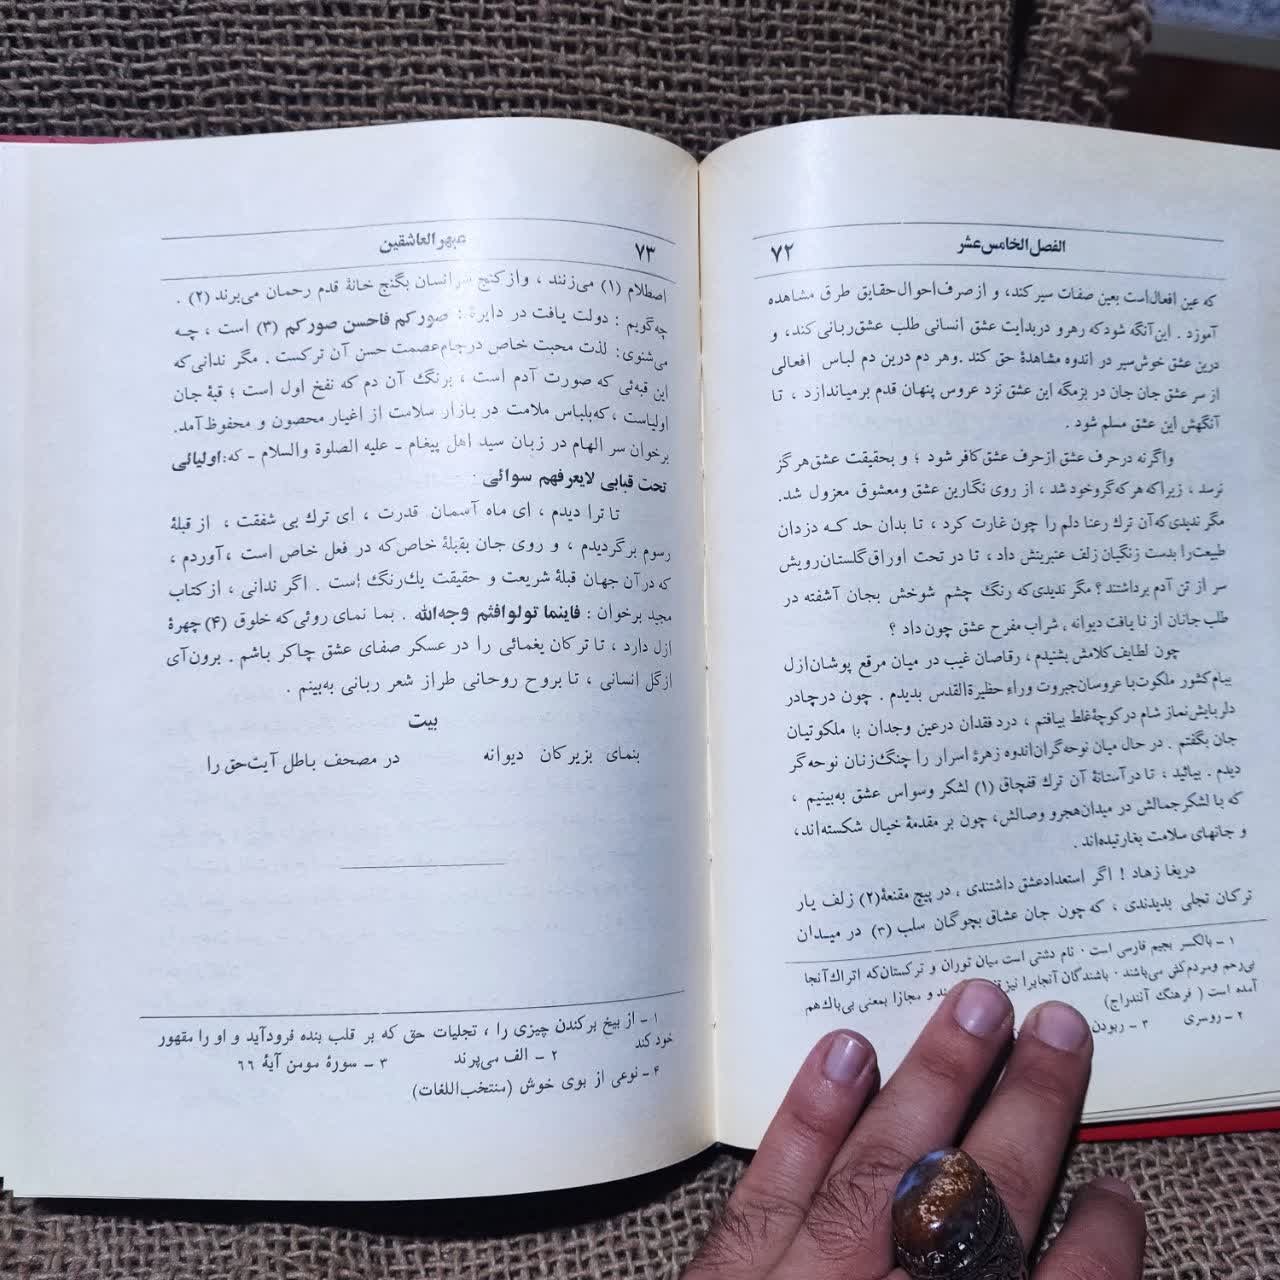 الفصل الخامس عشر
۷۲
که عین افعال است بعین صفات سیر کند، و از صرف احوال حقایق طرق مشاهده
آموزد . این آنگه شود که رهرو در بدایت عشق انسانی طلب عشق ربانی کند، و
درین عشق خوش سیر در اندوه مشاهدۀ حق کند .وهر دم درین دم لباس افعالی
از سر عشق جان جان در بزمگه این عشق نزد عروس پنهان قدم برمیاندازد ، تا
آنگهش این عشق مسلم شود .
واگرنه درحرف عشق ازحرف عشق کافر شود ؛ و بحقیقت عشق هرگز
نرسد ، زیراکه هرکه گروخود شد ، از روی نگارین عشق ومعشوق معزول شد.
مگر ندیدی که آن ترك رعنا دلم را چون غارت کرد ، تا بدان حد کـه دزدان
طبیعت را بدست زنگیان زلف عنبرینش داد ، تا در تحت اوراق گلستان رویش
سر از تن آدم برداشتند ؟ مگر ندیدی که رنگ چشم شوخش بجان آشفته در
طلب جانان از نا یافت دیوانه ، شراب مفرح عشق چون داد ؟
چون لطایف کلامش بشنیدم ، رقاصان غیب در میان مرقع پوشان ازل
بیام کشور ملکوت با عروسان جبروت وراء حظیرةالقدس بدیدم . چون درچادر
دلربایش نماز شام در کوچۀ غلط بیافتم ، درد فقدان درعین وجدان با ملکوتیان
جان بگفتم . در حال میان نوحه گران اندوه زهرۀ اسرار را چنگ زنان نوحه گر
دیدم . بیائید ، تا در آستانۀ آن ترك قفچاق (۱) لشکر وسواس عشق به بینیم ،
که با لشکر جمالش در میدان هجر و وصالش، چون بر مقدمۀ خیال شکسته اند،
و جانهای سلامت بغارتیده اند .
دریغا زهاد ! اگر استعداد عشق داشتندی ، در پیچ مقنعۀ(۲) زلف یار
ترکان تجلی بدیدندی ، که چون جان عشاق بچوگان سلب (۳) در میـدان
۱ ـ بالکسر بجیم فارسی است ۰ نام دشتی است میان توران و ترکستان که اتراك آنجا
بی رحم ومردم کش می باشند ۰ باشندگان آنجا را نیز و مجازا بمعنی بی باك هم
آمده است ( فرهنگ آنندراج)
۲ ـ روسری ۳ ـ ربودن
۷۳
عبهر العاشقین
اصطلام (۱) می زنند ، واز کنج سر انسان بگنج خانۀ قدم رحمان می برند (۲) .
چه گویم : دولت یافت در دایرۀ : صورکم فاحسن صورکم (۳) است ، چـه
می شنوی : لذت محبت خاص در جام عصمت حسن آن ترکست . مگر ندانی که
این قبه ئی که صورت آدم است ، برنگ آن دم که نفخ اول است ؛ قبۀ جان
اولیاست ، که بلباس ملامت در بازار سلامت از اغیار محصون و محفوظ آمد.
برخوان سر الهام در زبان سید اهل پیغام ـ علیه الصلوة والسلام ـ که: اولیائی
تحت قبابی لایعرفهم سوائی .
تا ترا دیدم ، ای ماه آسمان قدرت ، ای ترك بی شفقت ، از قبلۀ
رسوم برگردیدم ، و روی جان بقبلۀ خاص که در فعل خاص است ، آوردم ،
که در آن جهان قبلۀ شریعت و حقیقت یك رنگ است . اگر ندانی ، از کتاب
مجید برخوان : فاینما تولوافثم وجه الله . بما نمای روئی که خلوق (۴) چهرۀ
ازل دارد ، تا ترکان یغمائی را در عسکر صفای عشق چاکر باشم . برون آی
ازگل انسانی ، تا بروح روحانی طراز شعر ربانی به بینم .
بیت
بنمای بزیرکان دیوانه در مصحف باطل آیت حق را
۱ ـ از بیخ برکندن چیزی را ، تجلیات حق که بر قلب بنده فرودآید و او را مقهور
خود کند
۲ ـ الف می پرند ۳ ـ سورۀ مومن آیۀ ٦٦
۴ ـ نوعی از بوی خوش (منتخب اللغات)